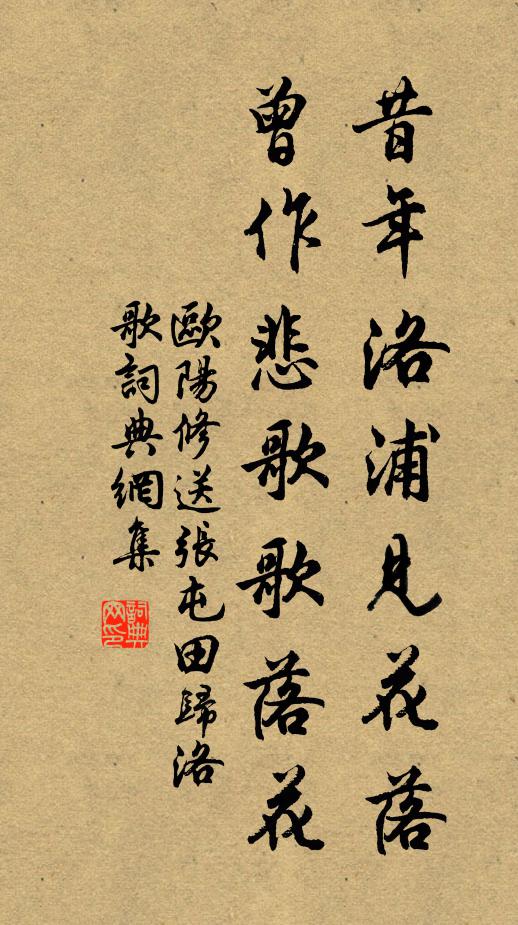 昔年洛浦見花落
曾作悲歌歌落花
歐陽修送張屯田歸洛
歌詞典網集
詞典
网印